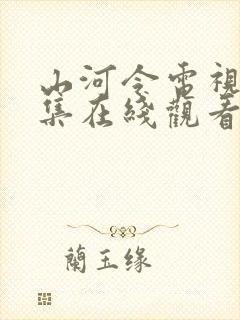 山河令電視
集在綫觀看
蘭玉缘